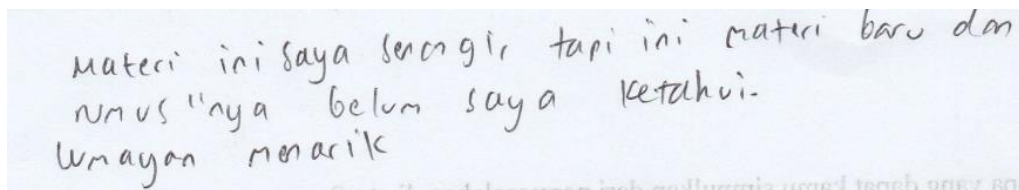 Materi ini saya senangi, tapi ini materi baru dan
rumus"nya belum saya ketahui.
Lumayan menarik